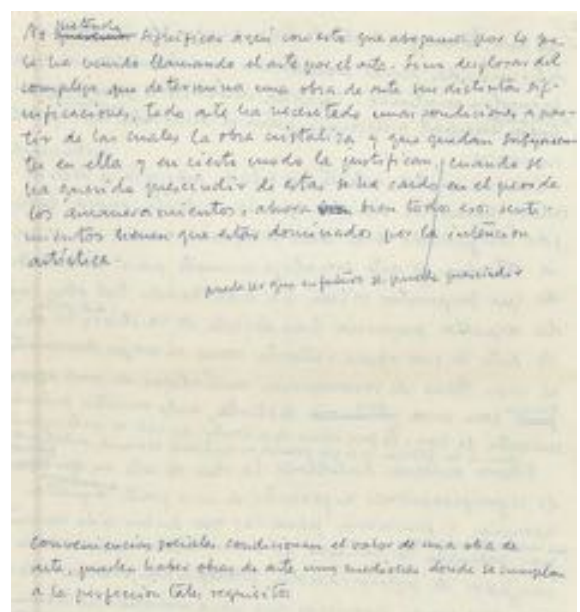 pretendo
No significar aquí con esto que abogamos por lo que
se ha venido llamando el arte por el arte. Sino desglosar del
complejo que determina una obra de arte sus distintas sig-
nificaciones, todo arte ha necesitado unas condiciones a par-
tir de las cuales la obra cristaliza y que quedan subyacen-
tes en ella y en cierto modo la justifican, cuando se
ha querido prescindir de estas se ha caido en el peor de
los amaneramientos, ahora bien todos esos senti-
mientos tienen que estar dominados por la intención
artística.
puede ser que en futuro se pueda prescindir
conveniencias sociales condicionan el valor de una obra de
arte, pueden haber obras de arte muy mediocres donde se cumplan
a la perfección tales requisitos